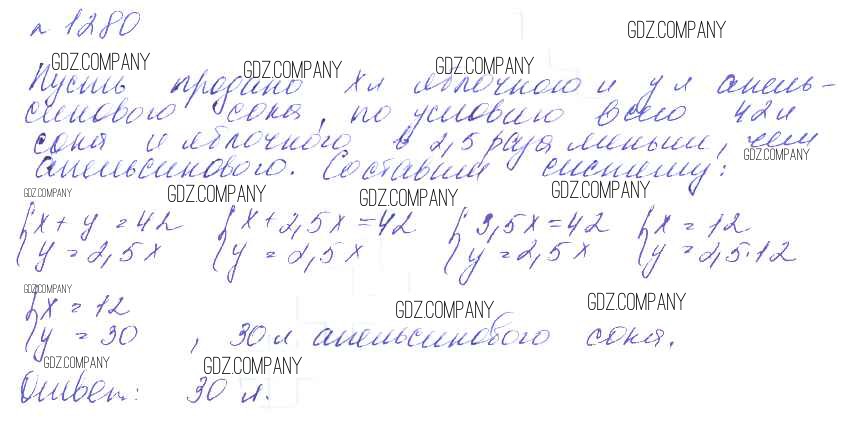 № 1280
GDZ.COMPANY
GDZ.COMPANY GDZ.COMPANY GDZ.COMPANY
Пусть продано х л яблочного и у л апель-
синового сока, по условию всего 42 л
сока и яблочного в 2,5 раза меньше, чем
GDZ.COMPANY
апельсинового. Составим систему:
GDZ.COMPANY GDZ.COMPANY GDZ.COMPANY GDZ.COMPANY
{x + y = 42 {x + 2,5x = 42 {3,5x = 42 {x = 12
{y = 2,5x {y = 2,5x {y = 2,5x {y = 2,5·12
GDZ.COMPANY GDZ.COMPANY GDZ.COMPANY
{x = 12
{y = 30 , 30 л апельсинового сока.
GDZ.COMPANY GDZ.COMPANY
Ответ: 30 л.